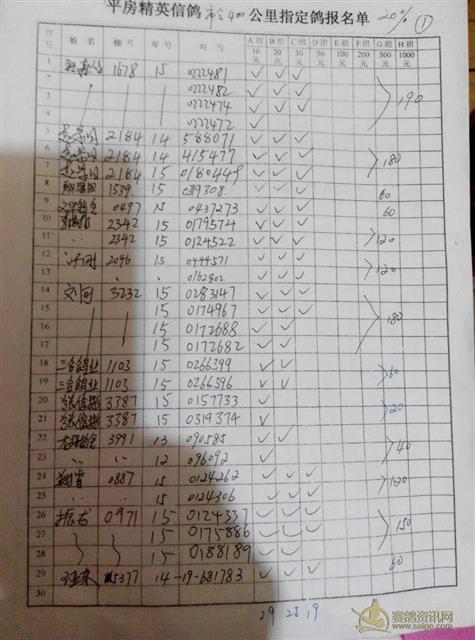 平房精英信鸽 400 公里指定鸽报名单 20% ①
序号 姓名 棚号 年号 环号 A组10元 B组20元 C组30元 D组50元 E组100元 F组200元 G组500元 H组1000元
1 1678 15 0222481 ✓ ✓ ✓
2 0222482 ✓ ✓ ✓
3 0222474 ✓ ✓ ✓ 190
4 0222472 ✓
5 2184 14 588071 ✓ ✓ ✓
6 2184 14 415477 ✓ ✓ ✓ 180
7 2184 15 0180449 ✓ ✓ ✓
8 1539 15 0319308 ✓ ✓ ✓ 60
9 0497 15 0437273 ✓ ✓ ✓ 60
10 2342 15 0179574 ✓ ✓ ✓
11 2342 15 0124522 ✓ ✓ ✓ 120
12 2046 15 0444571 ✓ ✓ ✓
13 0162802 ✓ ✓ ✓ 120
14 刘可 3232 15 0283147 ✓ ✓ ✓
15 15 0174967 ✓ ✓ ✓
16 15 0172688 ✓ ✓ 180
17 15 0172682 ✓ ✓
18 三合鸽业 1103 15 0266399 ✓ ✓
19 三合鸽业 1103 15 0266396 ✓ ✓ 60
20 3787 15 0157733 ✓
21 3387 15 0319374 ✓ 20
22 3991 13 090585 ✓ ✓
23 12 096092 ✓ 40
24 0887 15 0124262 ✓ ✓ ✓
25 15 0124306 ✓ ✓ ✓ 120
26 振吉 0971 15 0124337 ✓ ✓ ✓
27 15 0175886 ✓ ✓ 150
28 15 0188189 ✓ ✓ ✓
29 5377 14-19-681783 ✓ ✓ ✓ 60
30
29 25 19
赛鸽资讯网
www.saige.com